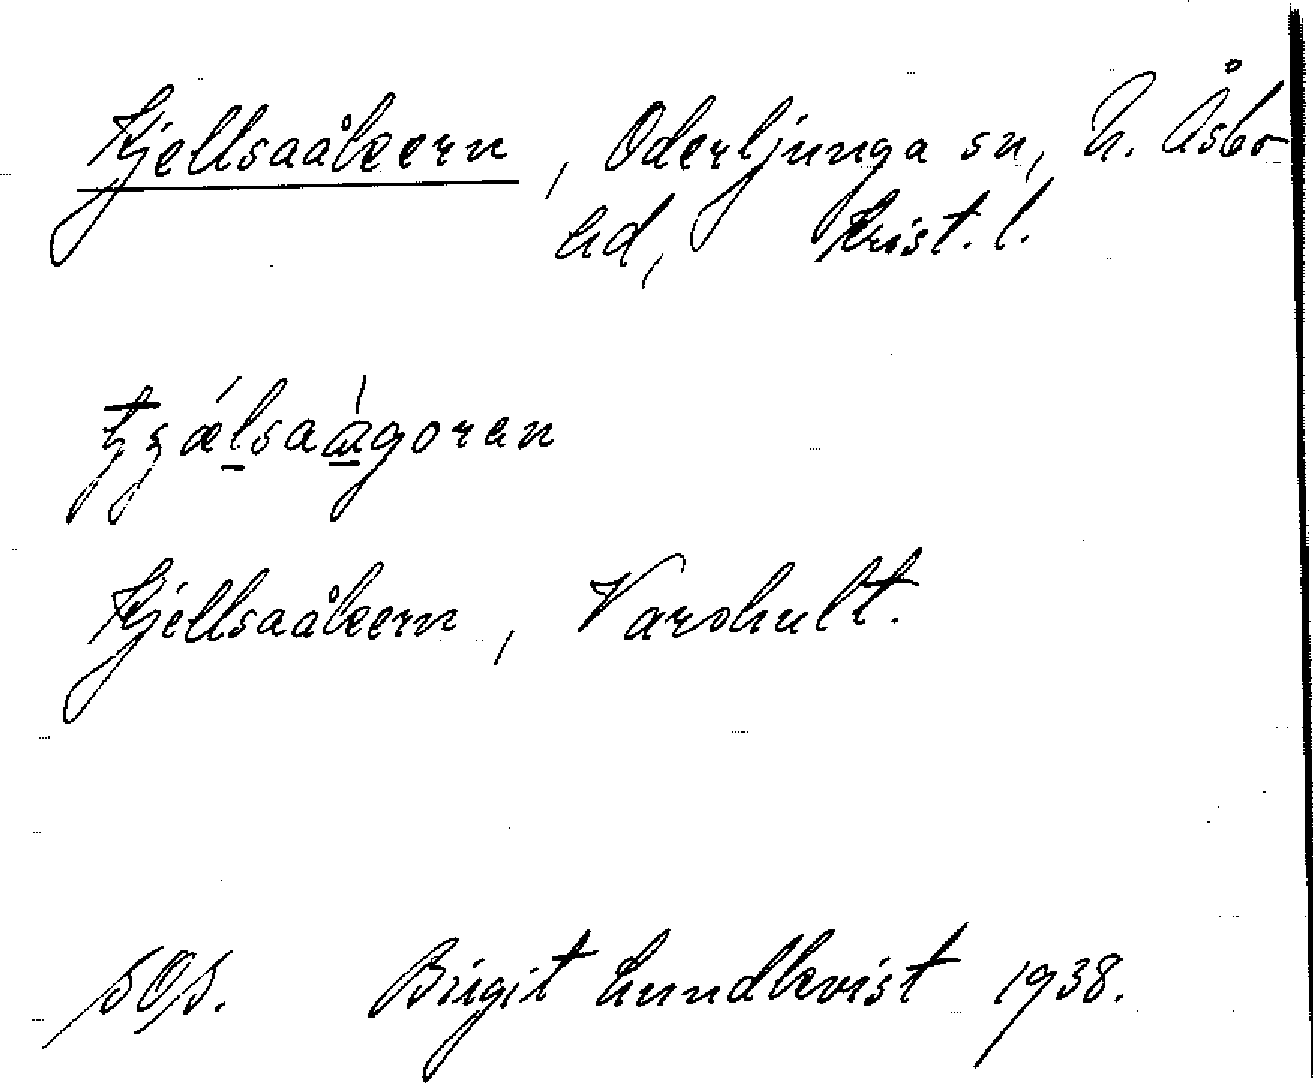 Kjellsaåkern, Oderljunga sn, N. Åsbo
hd, Krist. l.
Kjellsaåkern, Varshult.
SOS. Birgit Lundkvist 1938.